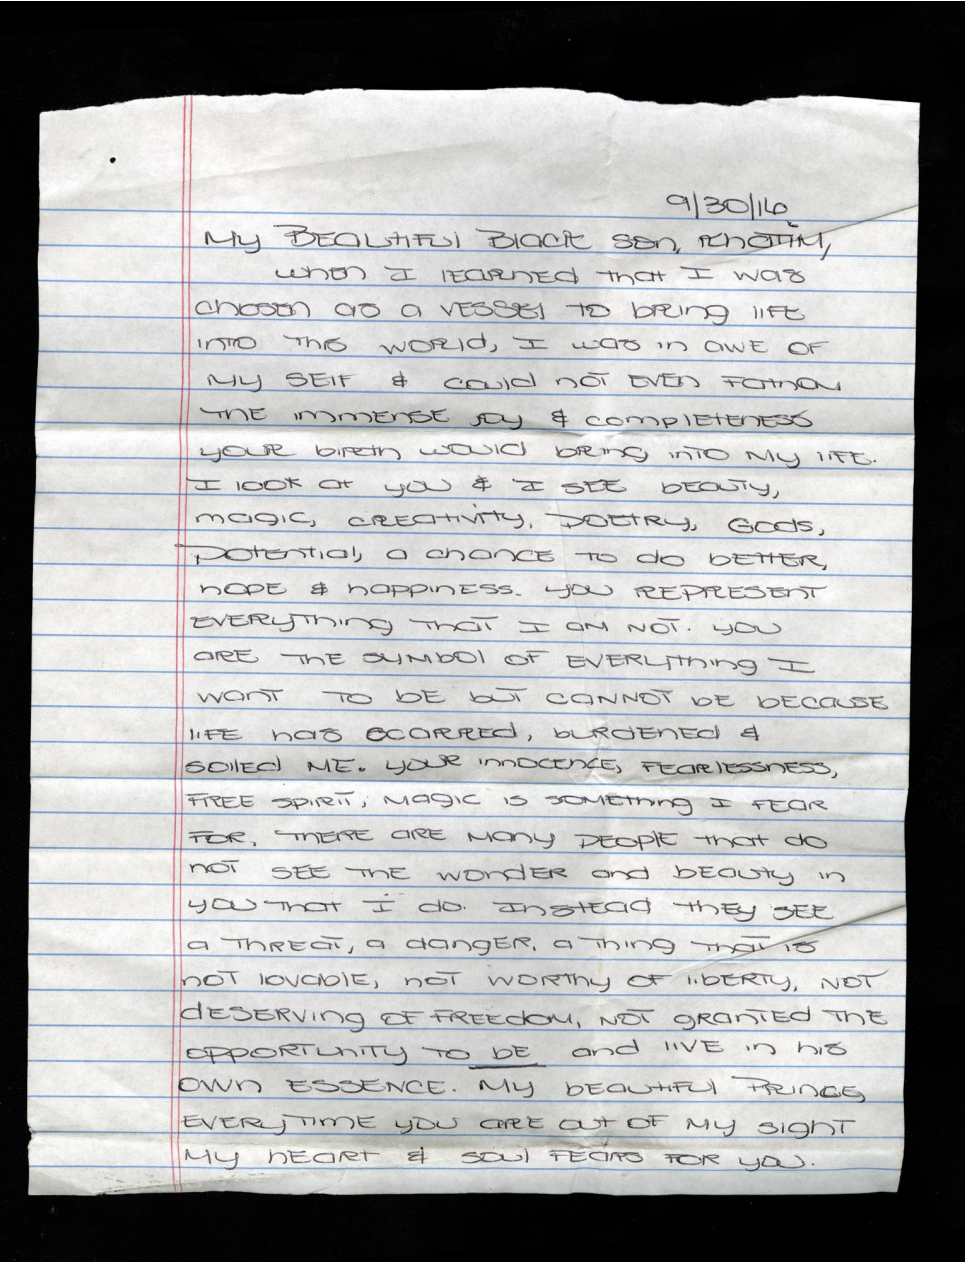 9/30/16
My Beautiful Black son, Khatim,
when I learned that I was
chosen as a vessel to bring life
into this world, I was in awe of
my self & could not even fathom
the immense joy & completeness
your birth would bring into my life.
I look at you & I see beauty,
magic, creativity, poetry, Gods,
potential, a chance to do better,
hope & happiness. You represent
everything that I am not. You
are the symbol of everything I
want to be but cannot be because
life has scarred, burdened &
soiled me. Your innocence, fearlessness,
free spirit, magic is something I fear
for. There are many people that do
not see the wonder and beauty in
you that I do. Instead they see
a threat, a danger, a thing that is
not lovable, not worthy of liberty, not
deserving of freedom, not granted the
opportunity to be and live in his
own essence. My beautiful Prince,
every time you are out of my sight
my heart & soul fears for you.